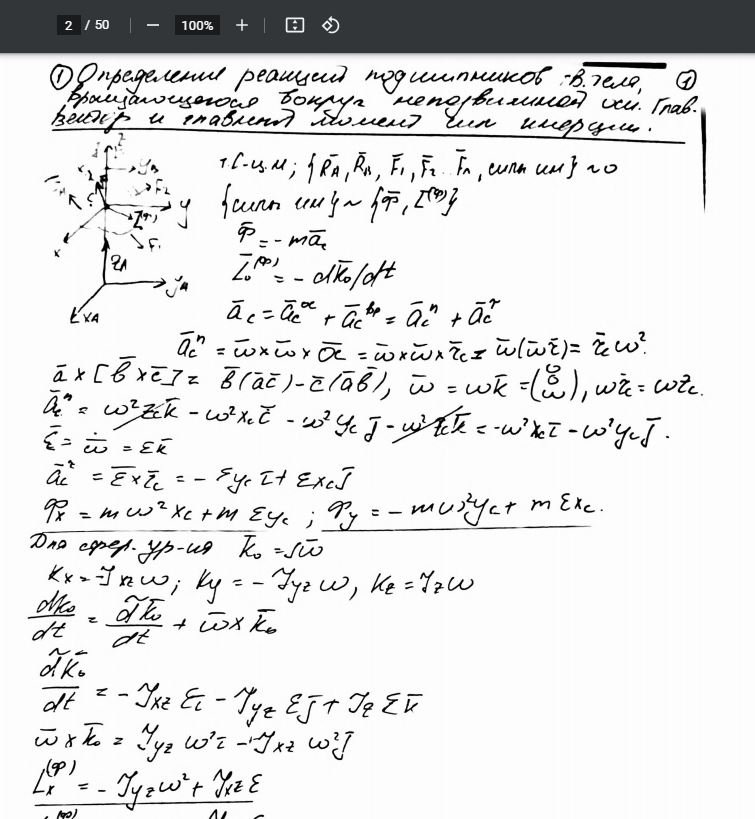 2 / 50 — 100% +
① Определение реакций подшипников тв. тела, ①
вращающегося вокруг неподвижной оси. Глав.
вектор и главный момент сил инерции.
т.C-ц.м; {R̄A, R̄B, F̄1, F̄2 .. F̄n, силы ин} ~ 0
{силы ин} ~ {Φ̄, L̄(Φ)}
Φ̄ = -māc
L̄o(Φ) = - dk̄o/dt
āc = āc + āc вр = āc^n + āc^τ
āc^n = ω̄ × ω̄ × OC = ω̄ × ω̄ × r̄c = ω̄(ω̄r̄) = r̄c ω².
ā × [b̄ × c̄] = b̄(āc̄) - c̄(āb̄), ω̄ = ωk̄ = (0 0 ω), ωr̄c = ωzc.
āc^n = ω²zck̄ - ω²xcī - ω²ycj̄ - ω²zck̄ = -ω²xcī - ω²ycj̄.
ε̄ = ω̄̇ = εk̄
āc^τ = ε̄ × r̄c = - εyc ī + εxcj̄
Φx = mω²xc + m εyc ; Φy = - mω²yc + m εxc.
Для ур-ия k̄o = Jω̄
Kx = -Jxz ω; Ky = - Jyz ω, Kz = Jz ω
dk̄o/dt = d̃k̄o/dt + ω̄ × k̄o
d̃k̄o/dt = - Jxz εī - Jyz εj̄ + Jz εk̄
ω̄ × k̄o = Jyz ω²ī - Jxz ω²j̄
Lx(Φ) = - Jyz ω² + Jxz ε